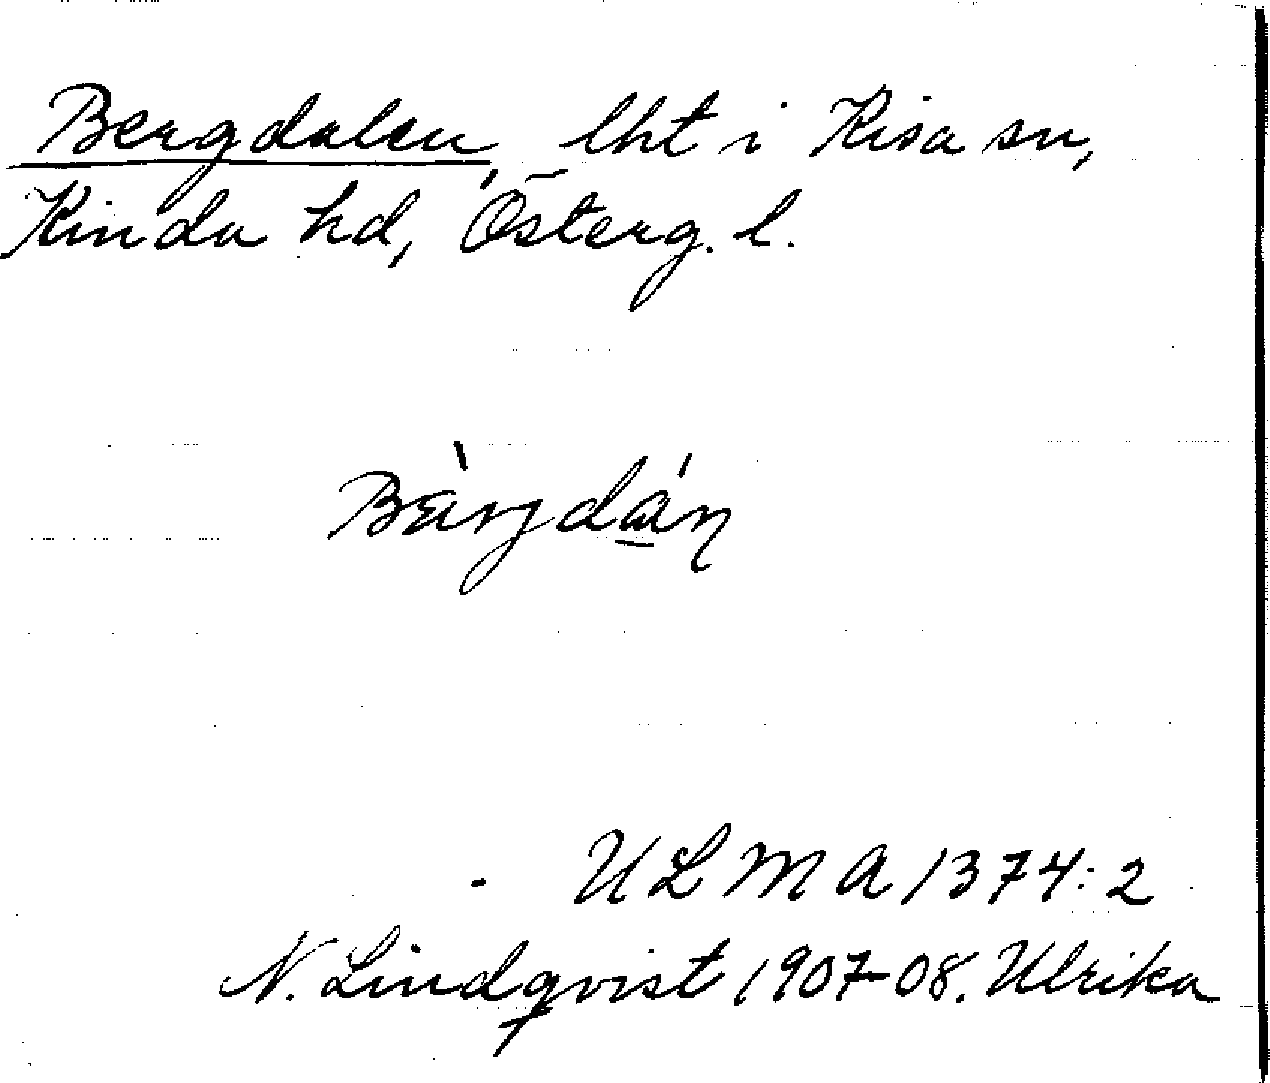 Bergdalen, lht i Kisa sn,
Kinda hd, Österg. l.
Bàrjdán
ULMA 1374:2
N. Lindqvist 1907-08. Ulrika